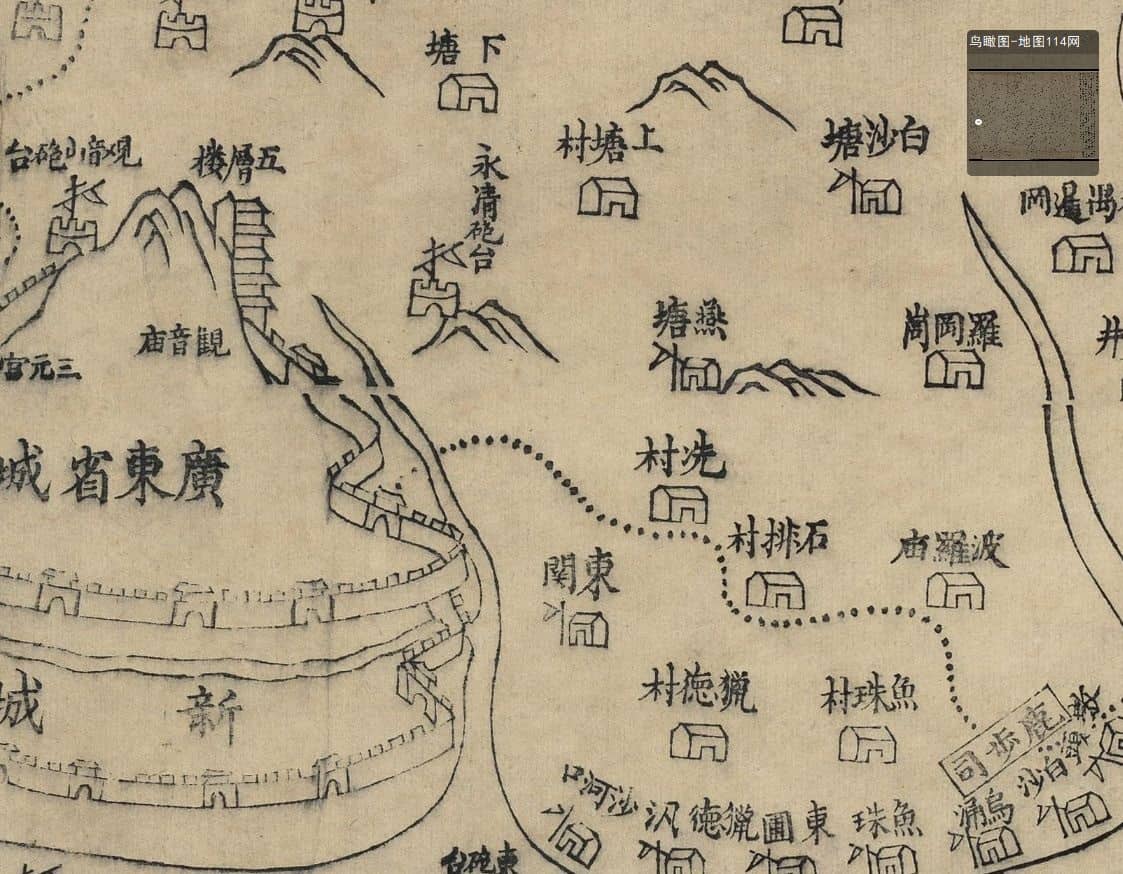 鸟瞰图-地图114网
下塘
上塘村
白沙塘
覌音山砲台
五層楼
永清砲台
觀音庙
三元宫
燕塘
羅岡
井
廣東省城
冼村
石排村
波羅庙
東関
獵徳村
魚珠村
新城
鹿歩司
白沙
沙河口
獵徳汛
東圃
魚珠
烏涌
東砲台